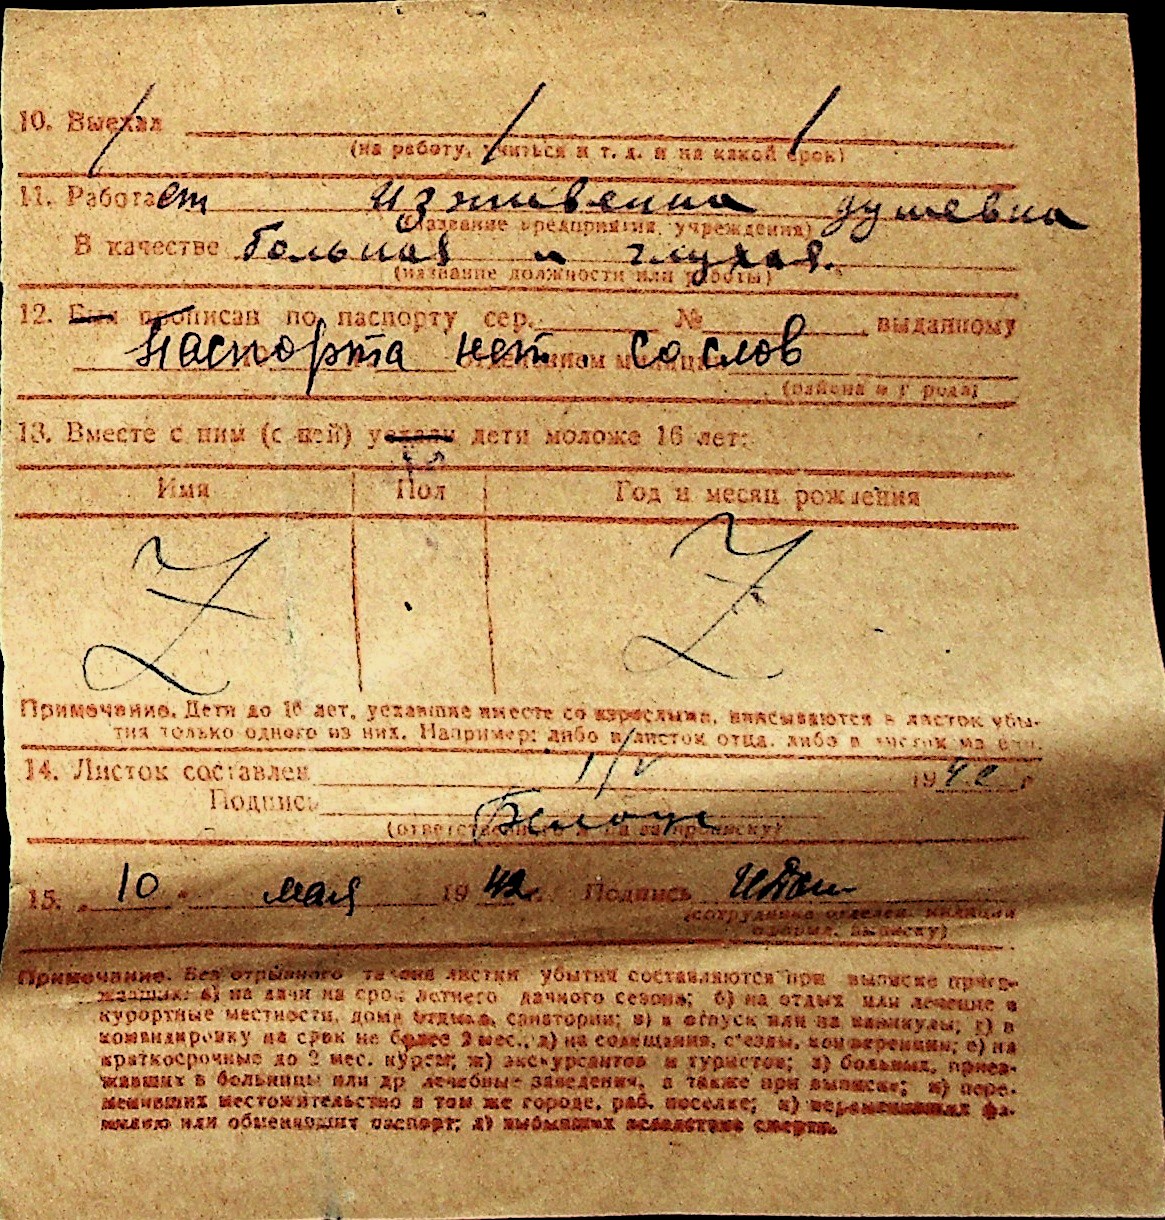 10. Выехал
(на работу, учиться и т. д. и на какой срок)
11. Работает иждивенка душевна
(название предприятия, учреждения)
В качестве больная и глухая.
(название должности или работы)
12. Был прописан по паспорту сер. № выданному
Паспорта нет. со слов
отделением милиции
(района и города)
13. Вместе с ним (с ней) уехали дети моложе 16 лет:
Имя Пол Год и месяц рождения
Z Z
Примечание. Дети до 16 лет, уехавшие вместе со взрослыми, вписываются в листок убы-
тия только одного из них. Например: либо в листок отца, либо в листок матери.
14. Листок составлен 1/V 1942 г
Подпись
(ответственного за прописку)
15. „ 10 " мая 1942 г. Подпись
(сотрудника отделен. милиции
оформл. выписку)
Примечание. Без отрывного талона листки убытия составляются при выписке приез-
жавших: а) на дачи на срок летнего дачного сезона; б) на отдых или лечение в
курортные местности, дома отдыха, санатории; в) в отпуск или на каникулы; г) в
командировку на срок не более 2 мес.; д) на совещания, с'езды, конференции; е) на
краткосрочные до 2 мес. курсы; ж) экскурсантов и туристов; з) больных, приез-
жавших в больницы или др лечебные заведения, а также при выписке; и) пере-
менивших местожительство в том же городе, раб. поселке; к) переменивших фа-
милию или обменявших паспорт; л) выбывших вследствие смерти.